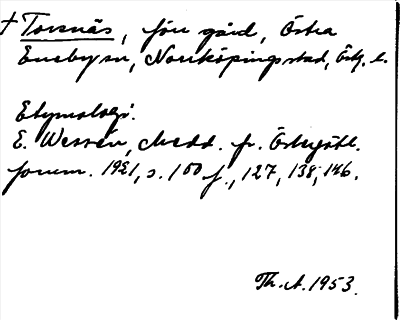 † Torsnäs, förr gård, Östra
Eneby sn, Norrköpings stad, Östg. l.
Etymologi.
E. Wessén, Medd. fr. Östergötl.
fornm. 1921, s. 100 f., 127, 138, 146.
Th. A. 1953.